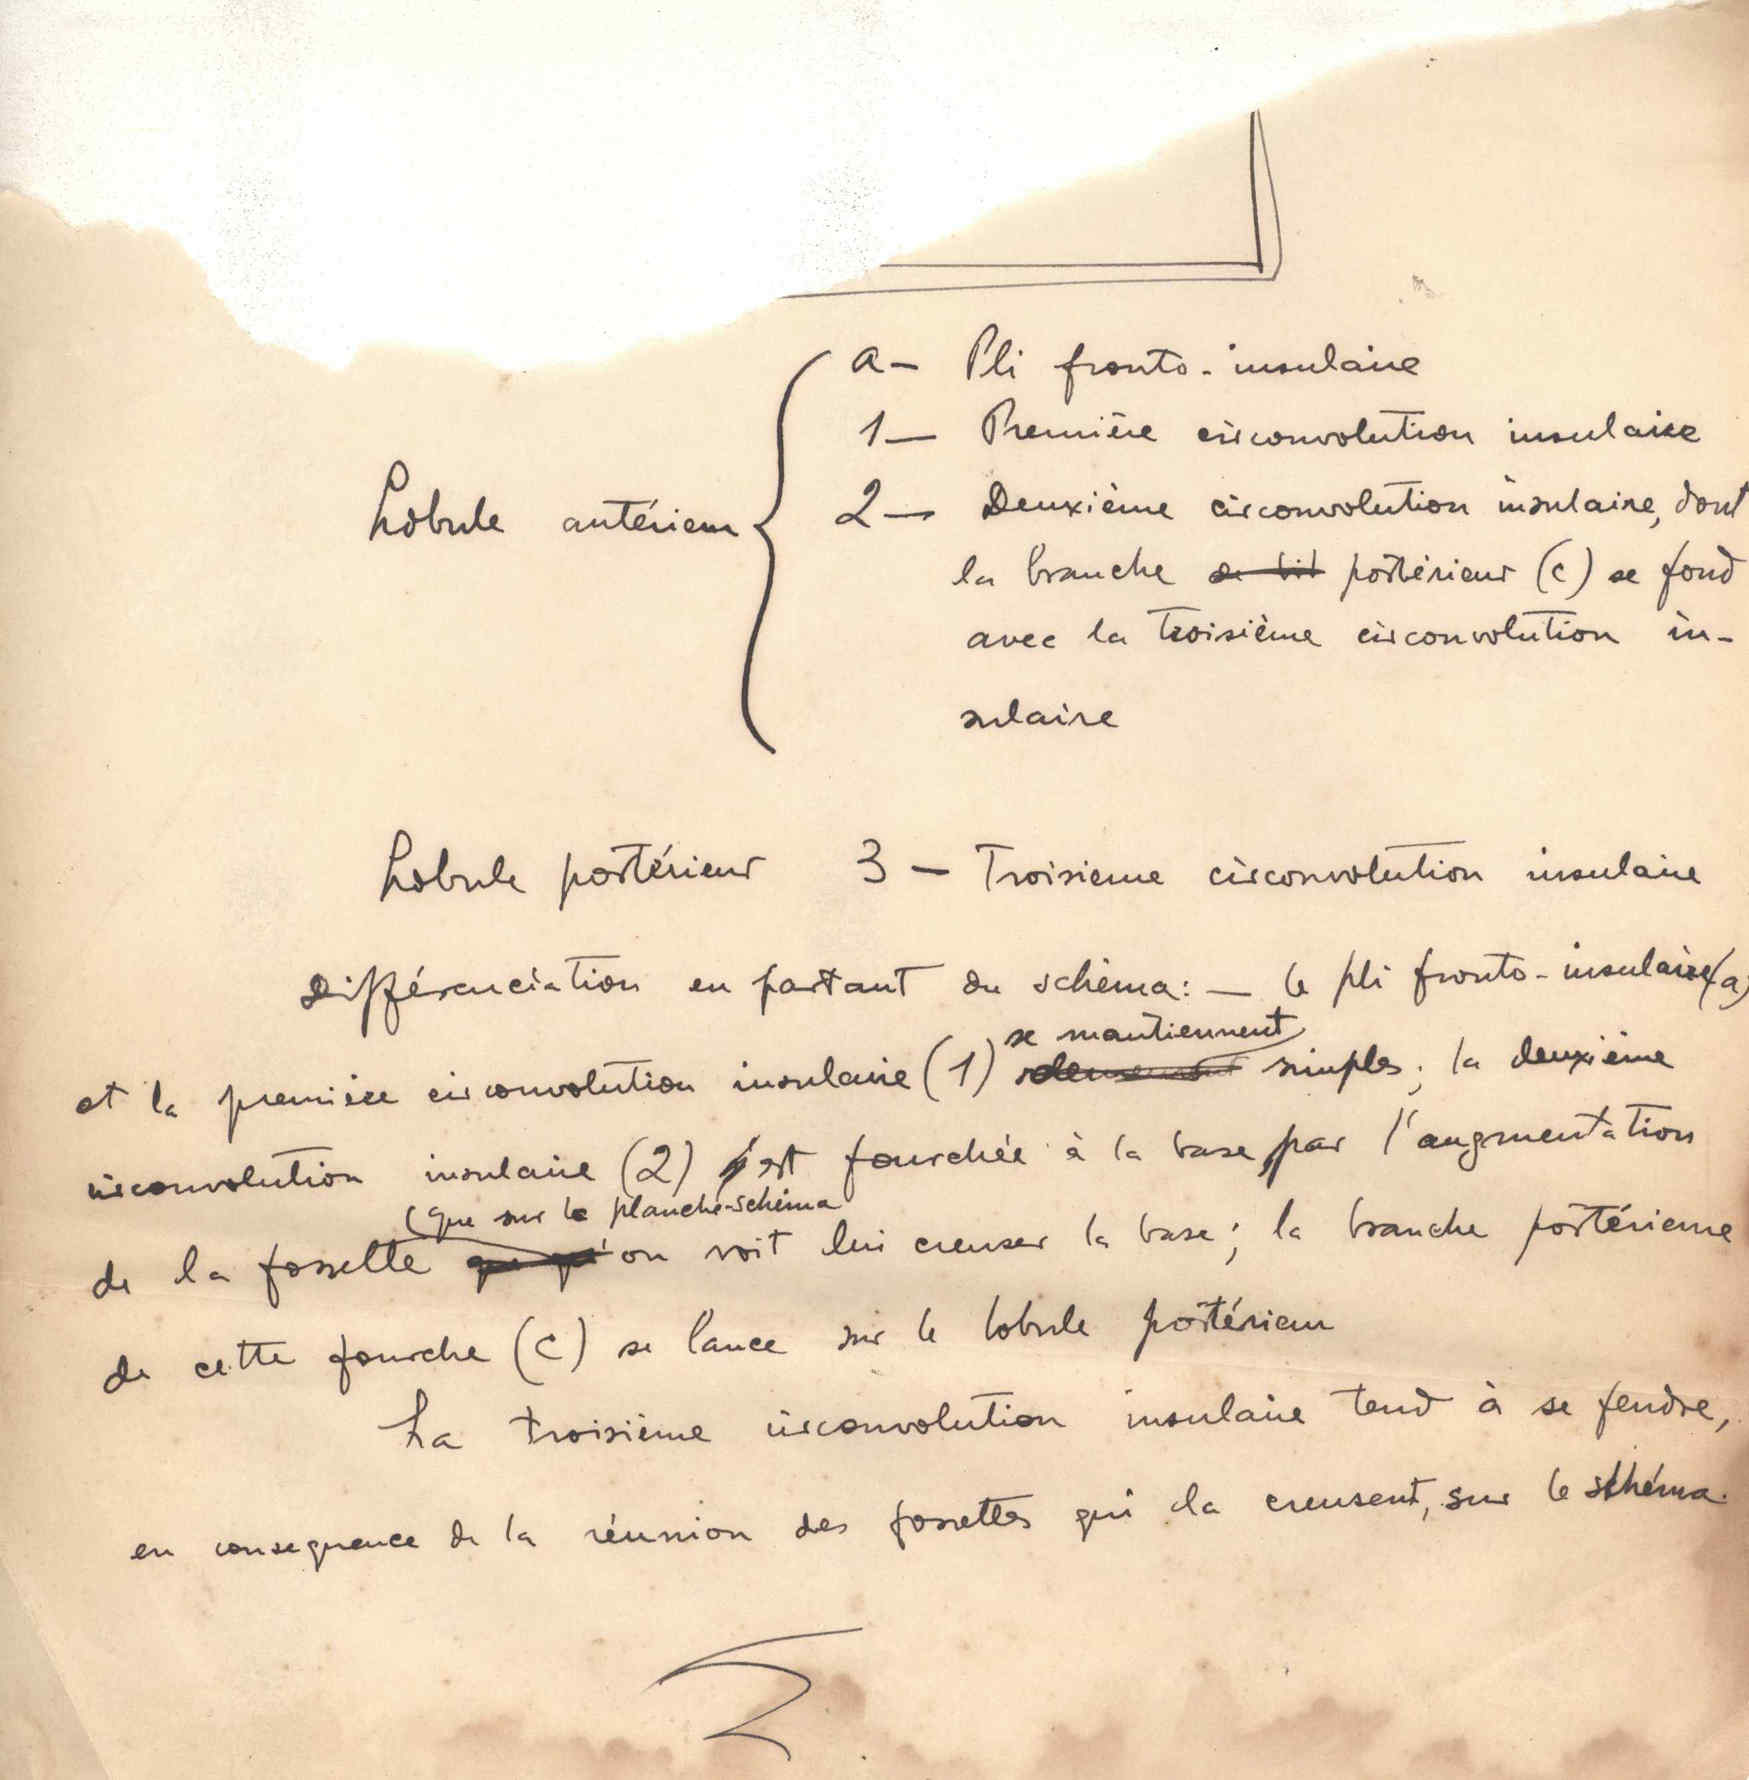 a — Pli fronto-insulaire
1 — Première circonvolution insulaire
Lobule antérieur
2 — Deuxième circonvolution insulaire, dont
la branche postérieur (c) se fond
avec la troisième circonvolution in-
sulaire
Lobule postérieur 3 — Troisieme circonvolution insulaire
Différenciation en partant du schéma: — le pli fronto-insulaire (a)
se mantiennent
et la première circonvolution insulaire (1) simples; la deuxième
circonvolution insulaire (2) est fourchée à la base par l'augmentation
(que sur le planche-schéma
de la fossette on voit lui creuser la base; la branche postérieure
de cette fourche (c) se lance sur le lobule postérieur
La troisième circonvolution insulaire tend à se fendre,
en consequence de la réunion des fossettes qui la creusent, sur le schéma.